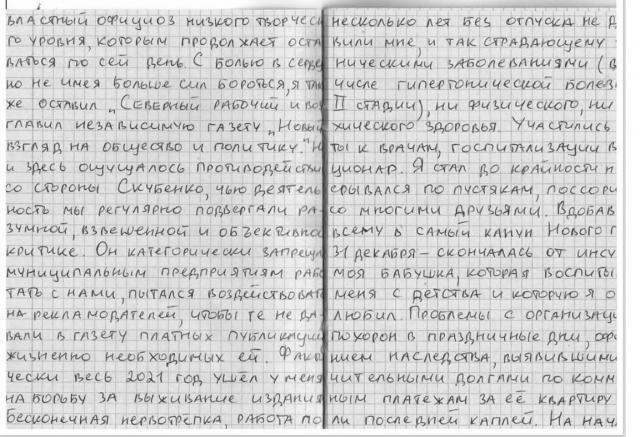 властный официоз низкого творчес
го уровня, которым продолжает оста
ваться по сей день. С болью в серд
но не имея больше сил бороться, я так
же оставил „Северный рабочий" и воз
главил независимую газету „Новый
взгляд на общество и политику". Н
и здесь ощущалось противодействи
со стороны Скубенко, чью деятель
ность мы регулярно подвергали ра
зумной, взвешенной и объективно
критике. Он категорически запреща
муниципальным предприятиям рабо
тать с нами, пытался воздействовать
на рекламодателей, чтобы те не да
вали в газету платных публикаций
жизненно необходимых ей. Факти
чески весь 2021 год ушёл у меня
на борьбу за выживание издания
бесконечная нервотрёпка, работа по
несколько лет без отпуска не д
вили мне, и так страдающему
ническими заболеваниями (в
числе гипертонической болез
II стадии), ни физического, ни
хического здоровья. Участились
ты к врачам, госпитализации в
ционар. Я стал до крайности н
срывался по пустякам, поссори
со многими друзьями. Вдобав
всему в самый канун Нового г
31 декабря – скончалась от инсу
моя бабушка, которая воспиты
меня с детства и которую я о
любил. Проблемы с организаци
похорон в праздничные дни, офо
нием наследства, выявившими
чительными долгами по комм
ным платежам за её квартиру
ли последней каплей. На нач